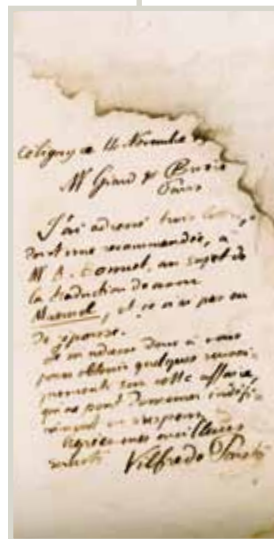 Céligny ce 14 Novembre
Mr Giard & Brière
Paris
J'ai adressé trois lettres,
dont une recommandée, à
Mr A. Bonnet, au sujet de
la traduction de mon
Manuel, et je n'ai pas eu
de réponse.
Je m'adresse donc à vous
pour obtenir quelques rensei-
gnements sur cette affaire,
qui ne peut demeurer indéfi-
niment en suspens.
Agréez mes meilleures
saluts Vilfredo Pareto